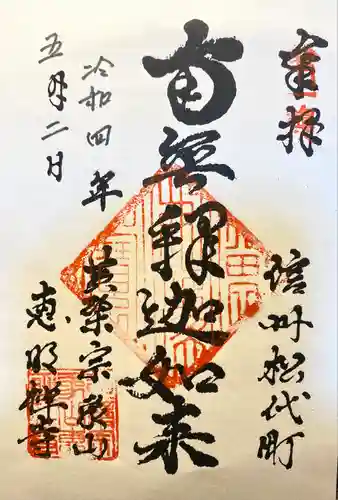 奉拝
信州松代町
南無釈迦如来
令和四年
五月二日
黄檗宗象山
恵明禅寺